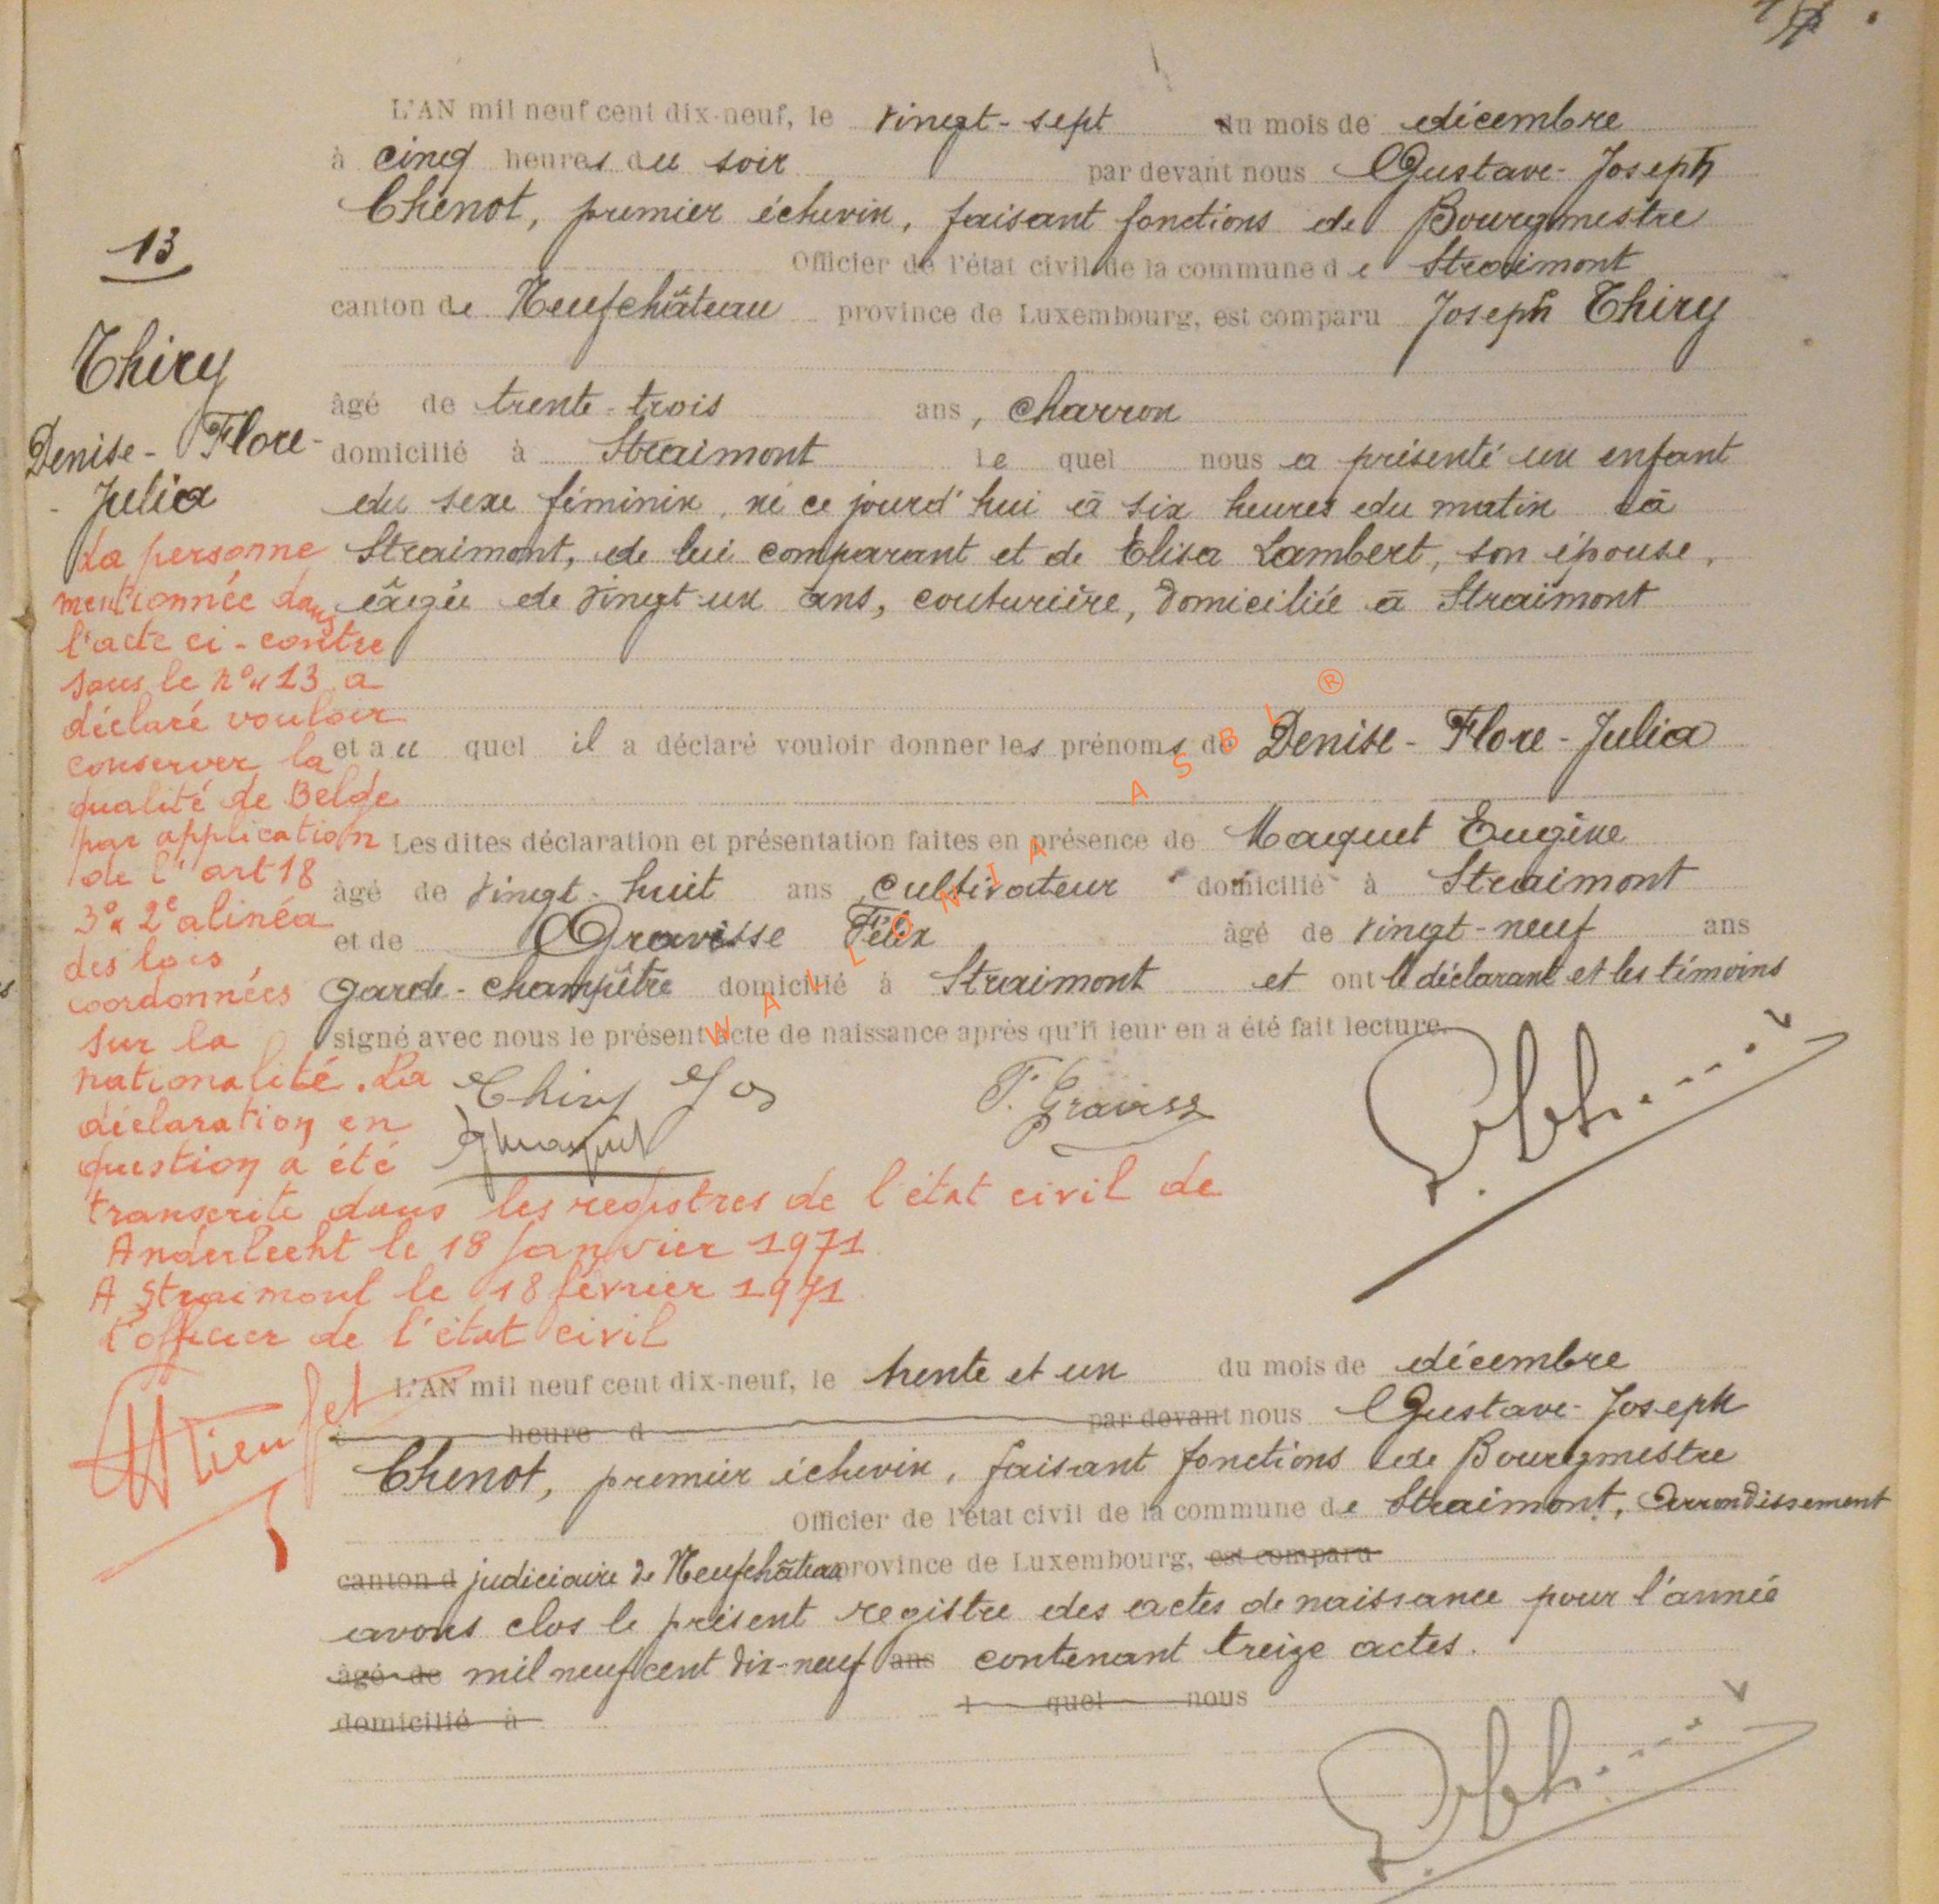 L'AN mil neuf cent dix-neuf, le vingt-sept du mois de décembre
à cinq heures du soir par devant nous Gustave-Joseph
Chenot, premier échevin, faisant fonctions de Bourgmestre
Officier de l'état civil de la commune de Straimont
canton de Neufchâteau province de Luxembourg, est comparu Joseph Thiry
âgé de trente-trois ans, charron
domicilié à Straimont lequel nous a présenté un enfant
du sexe féminin, né ce jourd'hui à six heures du matin à
Straimont, de lui comparant et de Elisa Lambert, son épouse,
âgée de vingt-un ans, couturière, domiciliée à Straimont
et auquel il a déclaré vouloir donner les prénoms de Denise-Flore-Julia
Les dites déclaration et présentation faites en présence de Maquet Eugène
âgé de vingt-huit ans, cultivateur domicilié à Straimont
et de Gravisse Félix âgé de vingt-neuf ans
garde-champêtre domicilié à Straimont et ont le déclarant et les témoins
signé avec nous le présent acte de naissance après qu'il leur en a été fait lecture.
Thiry Jos
F. Gravisse
13
Thiry
Denise-Flore-
-Julia
La personne
mentionnée dans
l'acte ci-contre
sous le n° 13 a
déclaré vouloir
conserver la
qualité de Belge
par application
de l'art 18
3° 2e alinéa
des lois
coordonnées
sur la
nationalité. La
déclaration en
question a été
transcrite dans les registres de l'état civil de
Anderlecht le 18 janvier 1971
A Straimont le 18 février 1971
l'officier de l'état civil
L'AN mil neuf cent dix-neuf, le trente et un du mois de décembre
heure d par devant nous Gustave-Joseph
Chenot, premier échevin, faisant fonctions de Bourgmestre
Officier de l'état civil de la commune de Straimont, Arrondissement
canton d judiciaire de Neufchâteau province de Luxembourg, est comparu
avons clos le présent registre des actes de naissance pour l'année
âgé de mil neuf cent dix-neuf ans contenant treize actes.
domicilié à l quel nous
WALLONIA ASBL ®